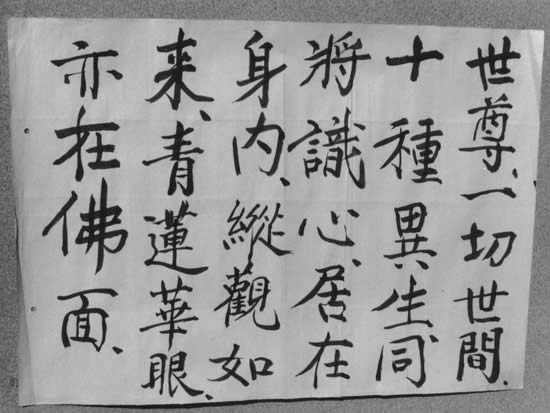 世尊、一切世間、
十種異生同
將識心、居在
身内、縱觀如
来、青蓮華眼、
亦在佛面、